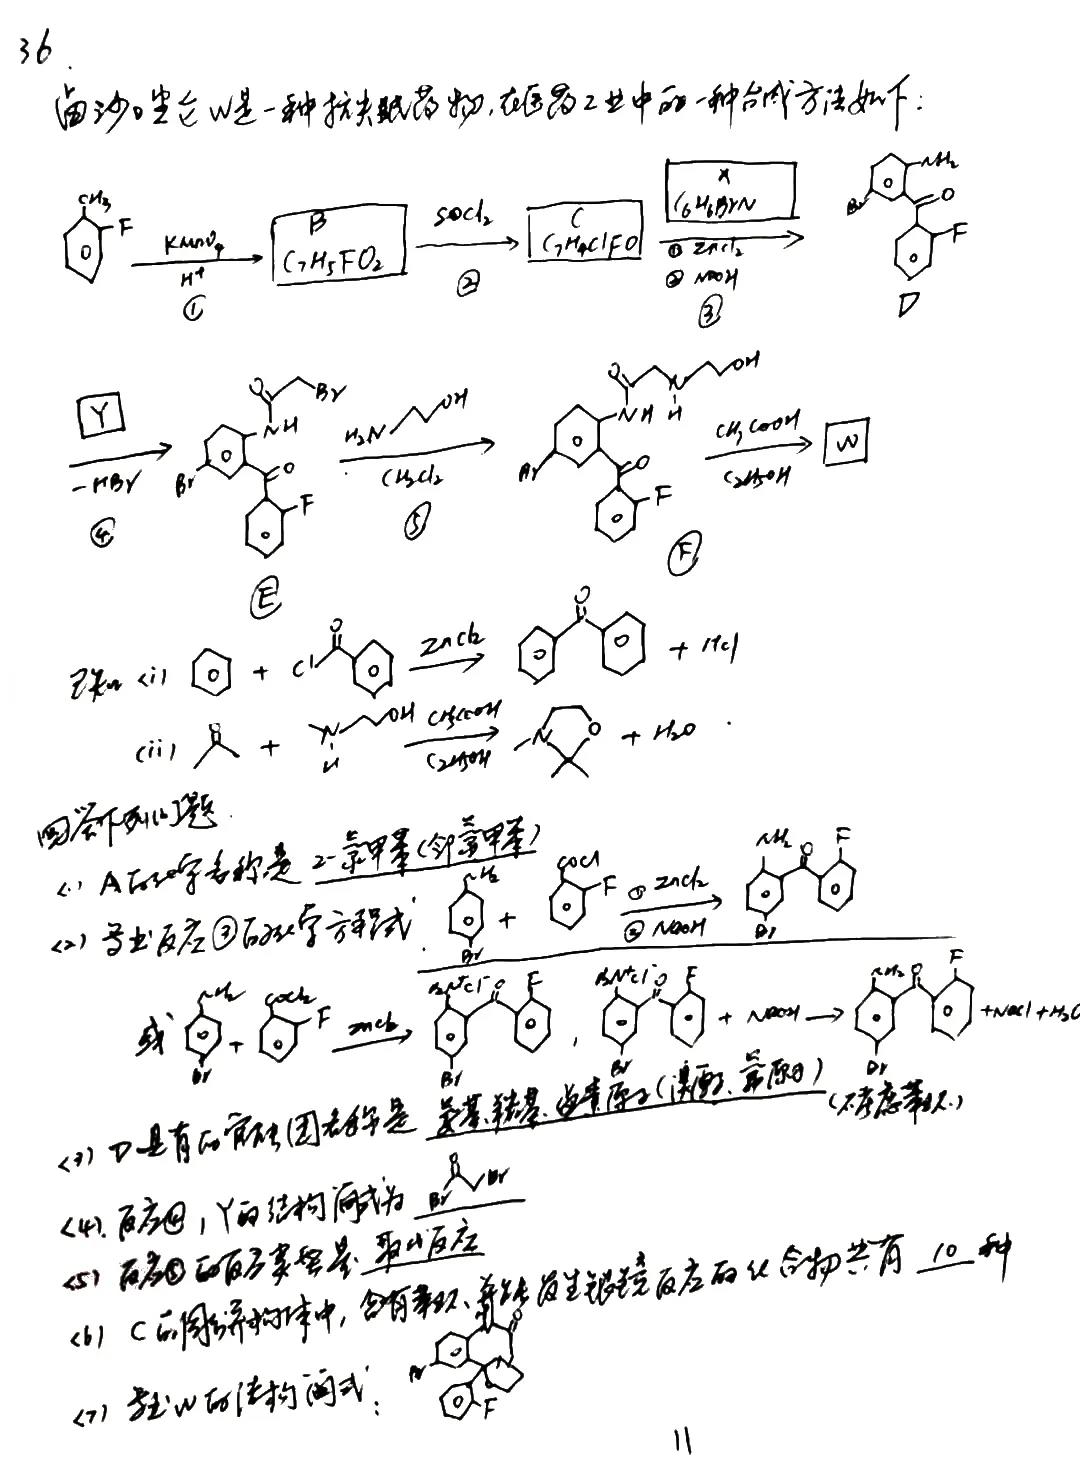 36.
卤沙唑仑W是一种抗失眠药物,在医药工业中的一种合成方法如下:
CH3 F KMnO4 H+ ① B C7H5FO2 SOCl2 ② C C7H4ClFO X C6H6BrN ① ZnCl2 ② NaOH ③ NH2 Br O F D
Y -HBr ④ O Br NH Br O F E H2N OH CH2Cl2 ⑤ O N H OH NH Br O F F CH3COOH C2H5OH W
已知 (i) + Cl O ZnCl2 O + HCl
(ii) O + N H OH CH3COOH C2H5OH N O + H2O
回答下列问题
(1) A的化学名称是 2-氟甲苯(邻氟甲苯)
(2) 写出反应③的化学方程式: NH2 Br + COCl F ① ZnCl2 ② NaOH NH2 O F Br
或 NH2 Br + COCl F ZnCl2 O F Br , O F Br + NaOH → NH2 O F Br + NaCl + H2O
(3) D具有的官能团名称是 氨基、羰基、卤素原子(溴原子、氟原子) (不考虑苯环)
(4). 反应④, Y的结构简式为 O Br Br
(5) 反应⑤的反应类型是 取代反应
(6) C的同分异构体中, 含有苯环、并能发生银镜反应的化合物共有 10 种
(7) 写出W的结构简式: O Br F
11